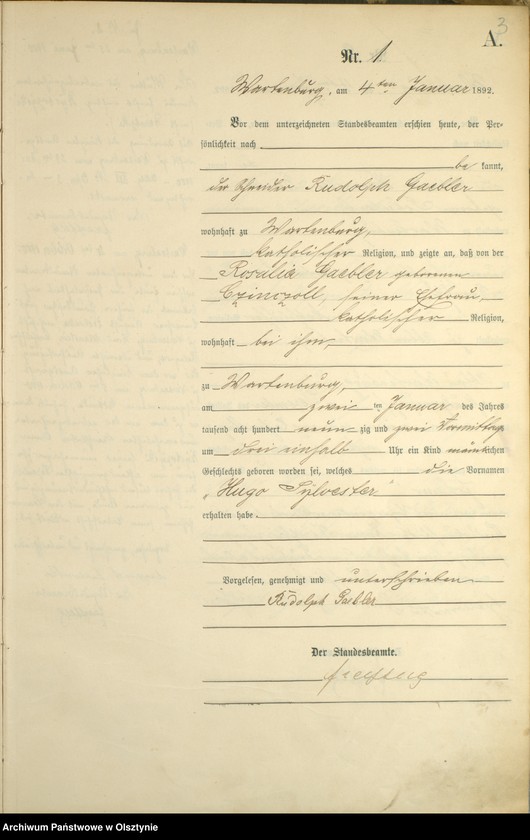 3
A.
Nr. 1
Wartenburg, am 4ten Januar 1892.
Vor dem unterzeichneten Standesbeamten erschien heute, der Per-
sönlichkeit nach
be kannt,
der Rudolph Gaebler
wohnhaft zu Wartenburg,
katholischer Religion, und zeigte an, daß von der
Rosalia Gaebler geborenen
Czinczoll, seiner Ehefrau,
katholischer Religion,
wohnhaft bei ihm,
zu Wartenburg,
am zwei ten Januar des Jahres
tausend acht hundert neun zig und zwei Vormittag
um drei einhalb Uhr ein Kind männlichen
Geschlechts geboren worden sei, welches die Vornamen
„Hugo Sylvester"
erhalten habe.
Vorgelesen, genehmigt und unterschrieben
Rudolph Gaebler
Der Standesbeamte.
Archiwum Państwowe w Olsztynie